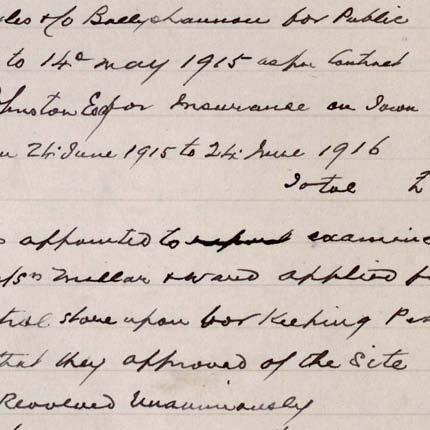 les & Co Ballyshannon for Public
to 14th may 1915 as per Contract
Johnston Esq for Insurance on Town
24th June 1915 to 24th June 1916
Total £
appointed to examine
Millar & Ward applied f
store upon for Keeping Pe
that they approved of the Site
Resolved Unanimously